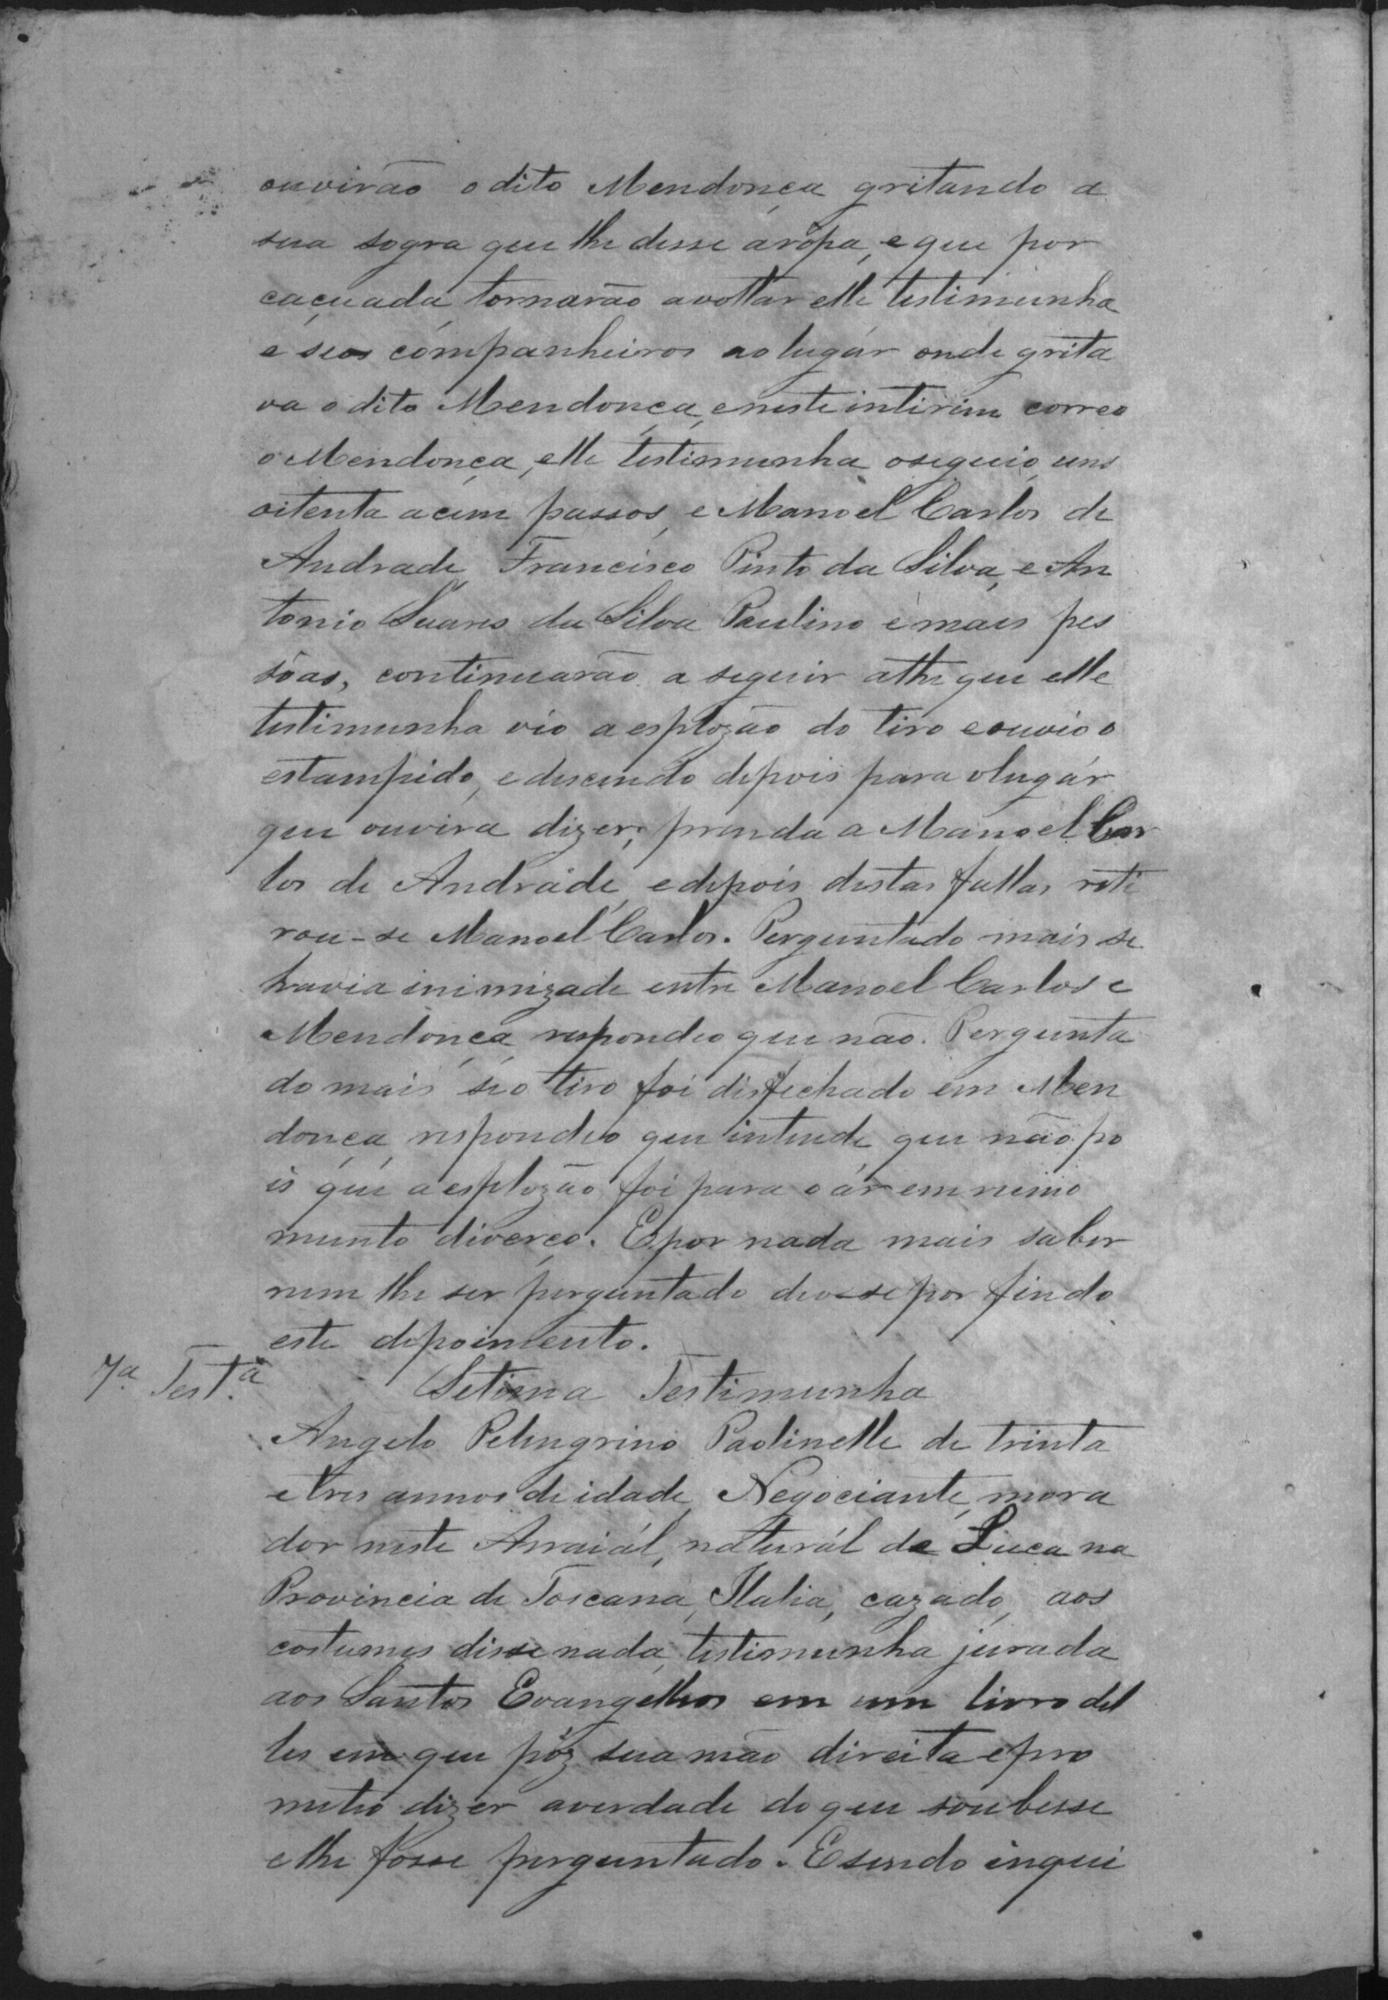 ouvirão o dito Mendonça gritando a
sua sogra que lhe desse a rôpa, e que por
caçuada tornarão a voltar elle testimunha
e seos companheiros ao lugár onde grita
va o dito Mendonça, e neste intirim correo
o Mendonça, elle testimunha o seguio uns
oitenta a cem passos, e Manoel Carlos de
Andrade, Francisco Pinto da Silva, e An
tonio Suares da Silva Paulino e mais pes
sôas, continuarão a seguir athe que elle
testimunha vio a esplozão do tiro e ouvio o
estampido, e descendo depois para o lugár
que ouvira dizer; prenda a Manoel Car
los de Andráde, e depois destas fallas reti
rou-se Manoel Carlos. Perguntado mais se
havia inimizade entre Manoel Carlos e
Mendonça, respondeo que não. Pergunta
do mais se o tiro foi disfechado em Men
donça respondeo que intende que não po
is que a esplozão foi para o ár em
mento diverço. E por nada mais saber
nem lhe ser perguntado deo-se por findo
este depoimento.
7ª Testª
Setima Testimunha
Angelo Pelingrino Paolinelle de trinta
e tres annos de idade, Negociante, mora
dor neste Arraiál, naturál de Luca na
Provincia de Toscana, Italia, cazado, aos
costumes disse nada, testimunha jurada
aos Santos Evangelhos em um livro del
les em que pôz sua mão direita e pro
meteo dizer a verdade do que soubesse
e lhe fosse perguntado. E sendo inqui